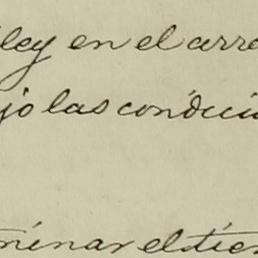 ley en el arre
jo las condici
minar el tiem